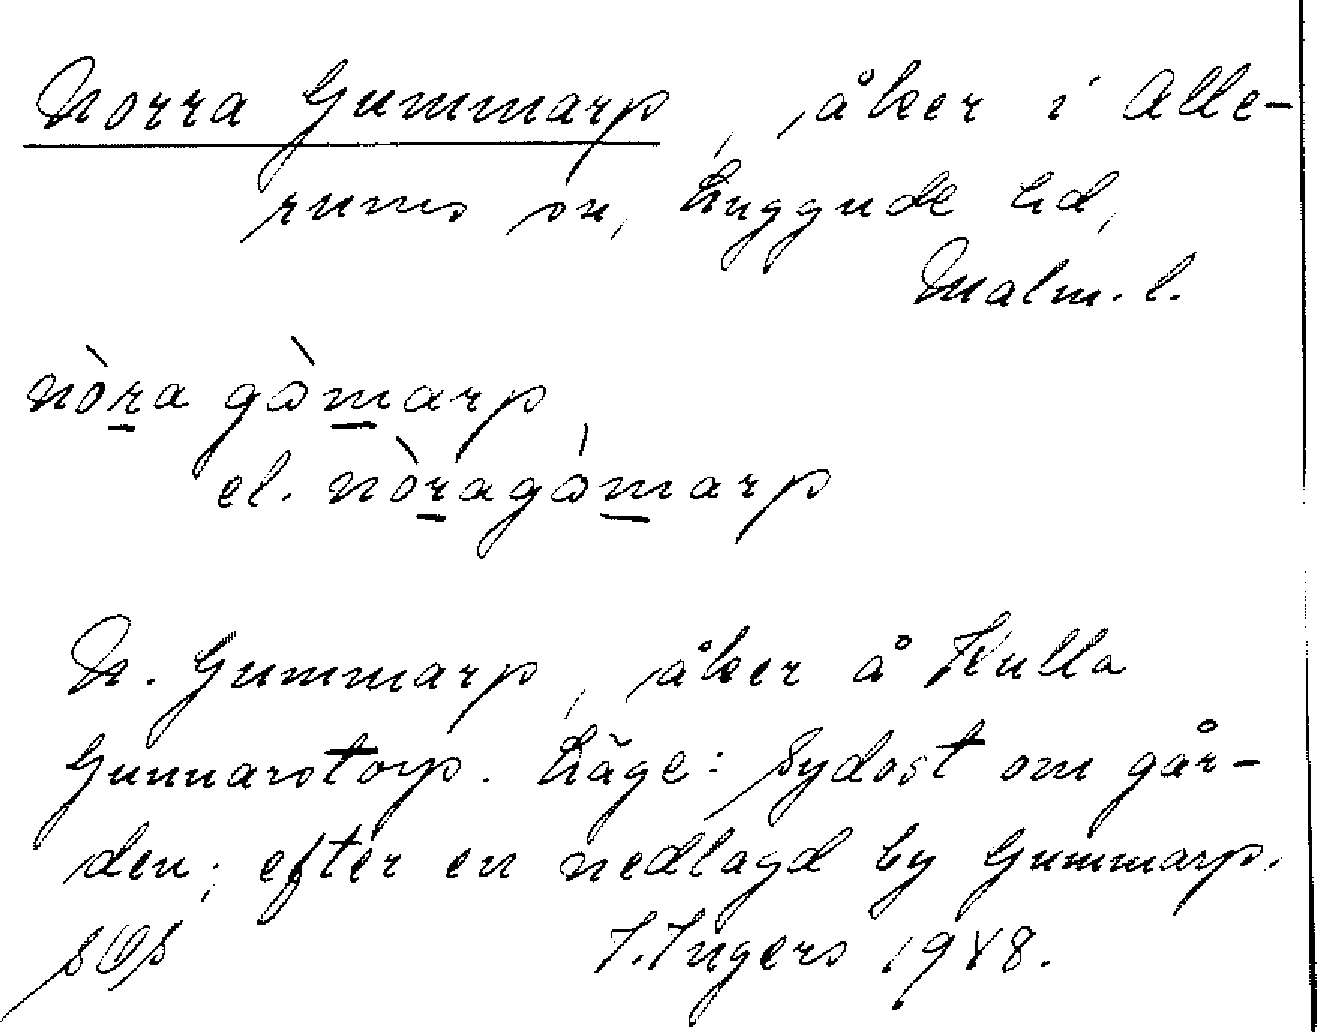 Norra Gummarp, åker i Alle-
rums sn, Luggude hd,
Malm. l.
nòra gòmarp
el. nòragómarp
N. Gummarp, åker å Kulla
Gunnarstorp. Läge: Sydost om går-
den; efter en nedlagd by Gummarp.
I. Ingers 1948.